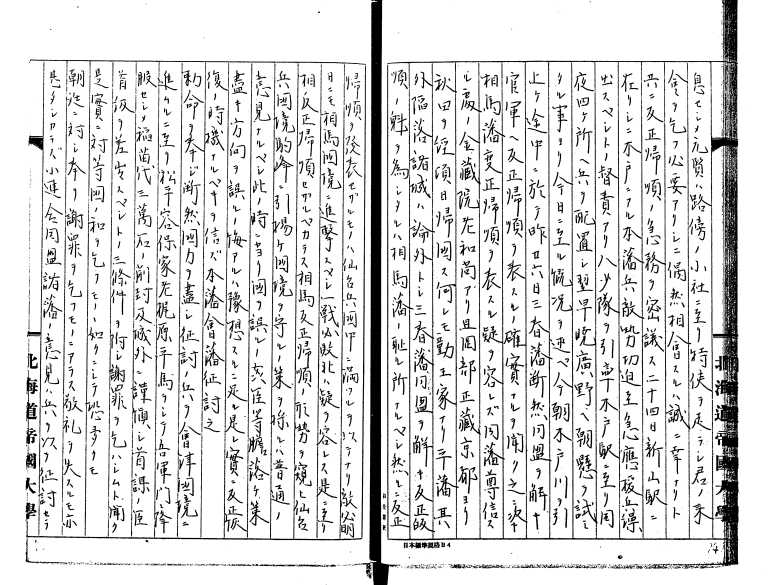 息セシメ元賢ハ路傍ノ小社ニ至リ特使ヲ走ラシ君ノ来
会ヲ乞フ必要アリシニ偶然相會スルハ誠ニ幸ナリト
共ニ反正帰順ノ急務ヲ密議ス二十四日新山駅ニ
在リシニ木戸ニアル本藩兵敵勢切迫至急應援兵繰
出スベシトノ督責アリ八少隊ヲ引率木戸駅ニ至リ同
夜四ケ所ヘ兵ヲ配置シ翌早暁廣野ヘ朝懸ヲ試ミ
タル事ヨリ今日ニ至ル情況ヲ述ベ今朝木戸川ヲ引
上ケ途中ニ於テ昨廿六日三春藩断然同盟ヲ解キ
官軍ヘ反正帰順ヲ表スル確実ナルヲ聞ク之次キ
相馬藩反正帰順ヲ表スル疑ヲ容レズ同藩尊信ス
ル慶ノ金蔵院茫和尚ブリ且岡部正蔵京都ヨリ
秋田ヲ経頃日帰国ス何レモ勤王家ナリ平藩其
外陥落諸城ハ論外トシ三春藩同盟ヲ解キ反正帰
順ノ魁ヲ為シタルハ相馬藩ノ恥ル所ナルベシ然ルニ反正
帰順ヲ発表セザルモノハ仙台兵国中ニ満ツルヲ以テナリ敵翰
日ニモ相馬国境ニ進撃スベシ一戦必敗北ハ疑ヲ容レス是ニ至リ
相反正帰順セザルベカラス相馬反正帰順ノ形勢ヲ窺ヒ仙台
兵国境駒峰ニ引揚ケ国境ヲ守ルノ策ヲ採ルハ普通ノ
意見ナルベシ此時ニ当リ国ヲ誤ルノ奸臣等膽落ケ策
盡キ方向ヲ誤ルノ悔アルハ豫想スルニ足ル是レ實ニ反正恢
復ノ時機ナルベキヲ信ズ本藩會藩征討之
勅命ヲ奉ジ断然国力ヲ盡シ征討兵ヲ會津国境ニ
進ムルニ至リ松平容保家老梶原平馬ヲシテ吾軍門ニ降
服セシメ福苗代三萬石ノ削封及城外ニ謹慎シ首謀ノ臣
首級ヲ差出スベシトノ三條件ヲ附シ謝罪ヲ乞ハシムト聞ク
是實ニ対等国ノ和ヲ乞フモノヽ如クニシテ恐多クモ
朝廷ニ対シ奉リ謝罪ヲ乞フモノニアラス敬礼ヲ失スルモ亦
甚タシカラズヤ連合同盟諸藩ノ意見兵ヲ以テ征討セラ
北海道帝國大學
北海道帝國大學
日本標準規格B4
14